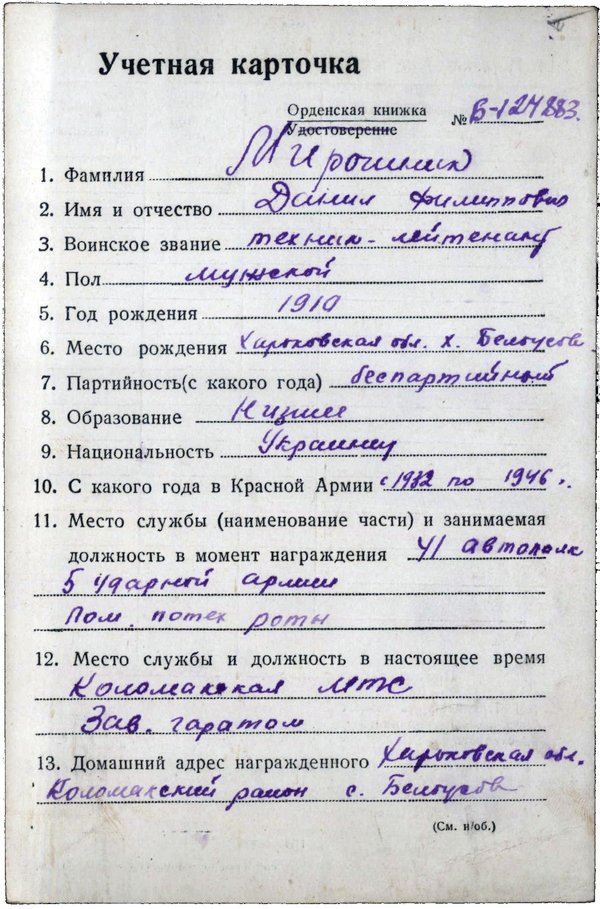 Учетная карточка
Орденская книжка
Удостоверение
№ В-127883.
1. Фамилия Мирошник
2. Имя и отчество Данил Филиппович
3. Воинское звание техник-лейтенант
4. Пол мужской
5. Год рождения 1910
6. Место рождения Харьковская обл. х. Белоусов
7. Партийность(с какого года) беспартийный
8. Образование Низшее
9. Национальность Украинец
10. С какого года в Красной Армии с 1932 по 1946 г.
11. Место службы (наименование части) и занимаемая
должность в момент награждения 41 автополк
5 ударной армии
Пом. потех роты
12. Место службы и должность в настоящее время
Коломакская МТС
Зав. гаражом
13. Домашний адрес награжденного Харьковская обл.
Коломакский район с. Белоусов
(См. н/об.)